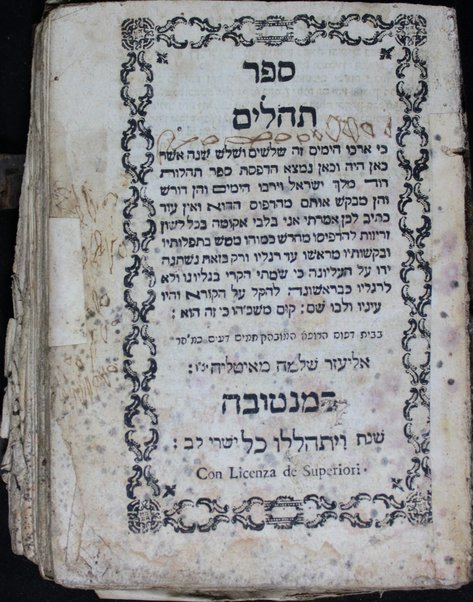 ספר
תהלים
כי ארכו הימים זה שלשים ושלש שנה אשר
כאן היה וכאן נמצא הדפסת ספר תהלות
דוד מלך ישראל וירבו הימים והן דורש
והן מבקש אותם מהדפוס הדוא ואין עוד
כתיב לכן אמרתי אני בלבי אקומה בכל לשון
זריזות להדפיסו מחדש כמוהו ממש בתפלותיו
ובקשותיו מראשו עד רגליו ורק בזאת נשתנה
ידו על העליונה כי שמתי הקרי בגליונו ולא
לרגליו כבראשונה להקל על הקורא והיו
עיניו ולבו שם: קום משחהו כי זה הוא:
בבית דפוס הרופא המובהק תמים דעים כמ"הר
אליעזר שלמה מאיטליה יצ"ו:
במנטובה
שנת ויתהללו כל ישרי לב:
Con Licenza de Superiori.